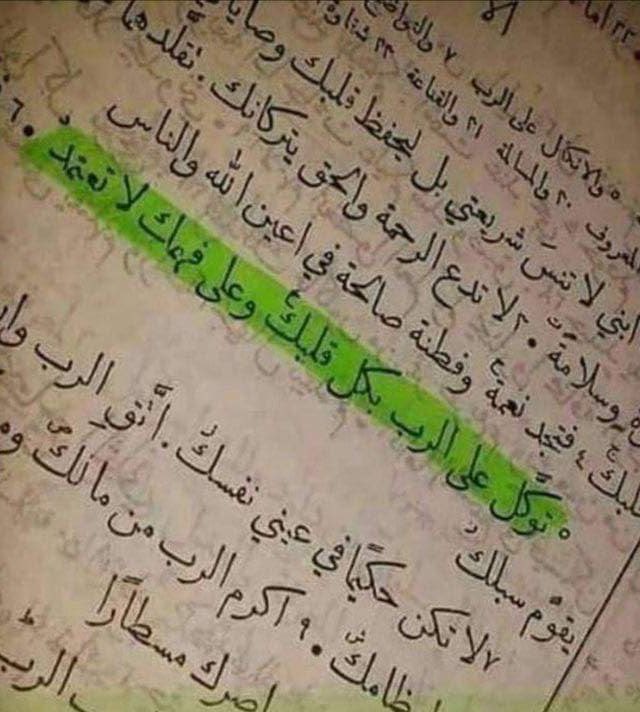 ٥ والاتكال على الرب ٧ والتواضع
المعروف ٢٠ والمسالمة ٢١ والقناعة ٢٣
ابني لا تنسَ شريعتي بل ليحفظ قلبك وصايا
وسلامة. ٣ لا تدع الرحمة والحق يتركانك. تقلدها
قلبك ٤ فتجد نعمة وفطنة صالحة في اعين الله والناس
٥ توكَّل على الرب بكل قلبك وعلى فهمك لا تعتمد. ٦
يقوّم سبلك
٧ لا تكن حكيمًا في عيني نفسك. اتَّقِ الرب
لعظامك. ٩ اكرم الرب من مالك
مسطارًا
الرب